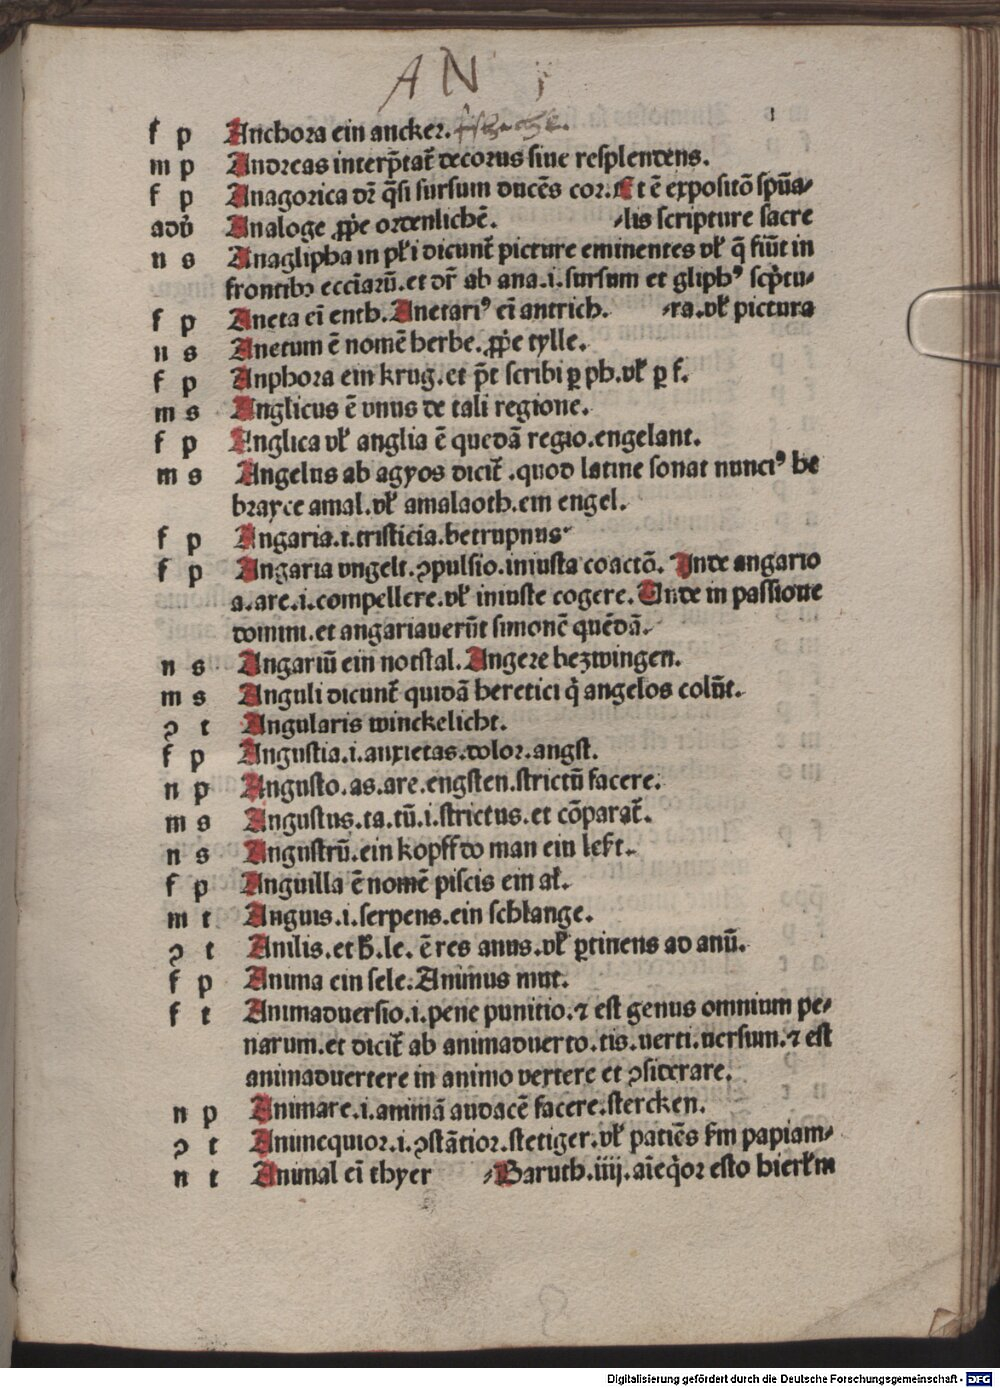 A N
f p Anchora ein ancker.
m p Andreas interp̄tat᷑ decorus siue resplendens.
f p Anagorica dr̄ q̄si sursum ducēs cor. Et ē expositō spūa⸗
adū Analoge ꝓpͥe ordenlichē. ⸗lis scripture sacre
n s Anaglipha in pl̄i dicunt᷑ picture eminentes vl̄ q̄ fiūt in
frontibꝫ ecc̄iarū. et dr̄ ab ana .i. sursum et gliphꝰ scp̄tu⸗
f p Aneta eī enth. Anetariꝰ eī antrich. ⸗ra. vl̄ pictura
n s Anetum ē nomē herbe. ꝓpͥe tylle.
f p Anphora ein krug. et pt̄ scribi ꝑ ph. vl̄ ꝑ f.
m s Anglicus ē vnus de tali regione.
f p Anglica vl̄ anglia ē quedā regio. engelant.
m s Angelus ab agyos dicit᷑ .quod latine sonat nunciꝰ he
brayce amal. vl̄ amalaoth. ein engel.
f p Angaria .i. tristicia. betrupnus
f p Angaria vngelt. ꝯpulsio. iniusta coactō. Inde angario
a. are .i. compellere. vl̄ iniuste cogere. Unde in passione
domini. et angariauerūt simonē quēdā.
n s Angariū ein notstal. Angere bezwingen.
m s Anguli dicunt᷑ quidā heretici qͥ angelos colūt.
ꝯ t Angularis winckelicht.
f p Angustia .i. anxietas. dolor. angst.
n p Angusto. as. are. engsten. strictū facere.
m s Angustus. ta. tū .i. strictus. et cōparat᷑.
n s Angustrū. ein kopff do man ein lest.
f p Anguilla ē nomē piscis ein al.
m t Anguis .i. serpens. ein schlange.
ꝯ t Anilis. et h̄. le. ē res anus. vl̄ ꝑtinens ad anū.
f p Anima ein sele. Animus mut.
f t Animaduersio .i. pene punitio. ⁊ est genus omnium pe⸗
narum. et dicit᷑ ab animaduerto. tis. uerti. uersum. ⁊ est
animaduertere in animo vertere et ꝯsiderare.
n p Animare .i. animā audacē facere. stercken.
ꝯ t Animequior .i. ꝯstātior. stetiger. vl̄ patiēs s̄m papiam⸗
n t Animal eī thyer ⸗Baruth. iiij. aīeqͥor esto hierl̄m
Digitalisierung gefördert durch die Deutsche Forschungsgemeinschaft - DFG